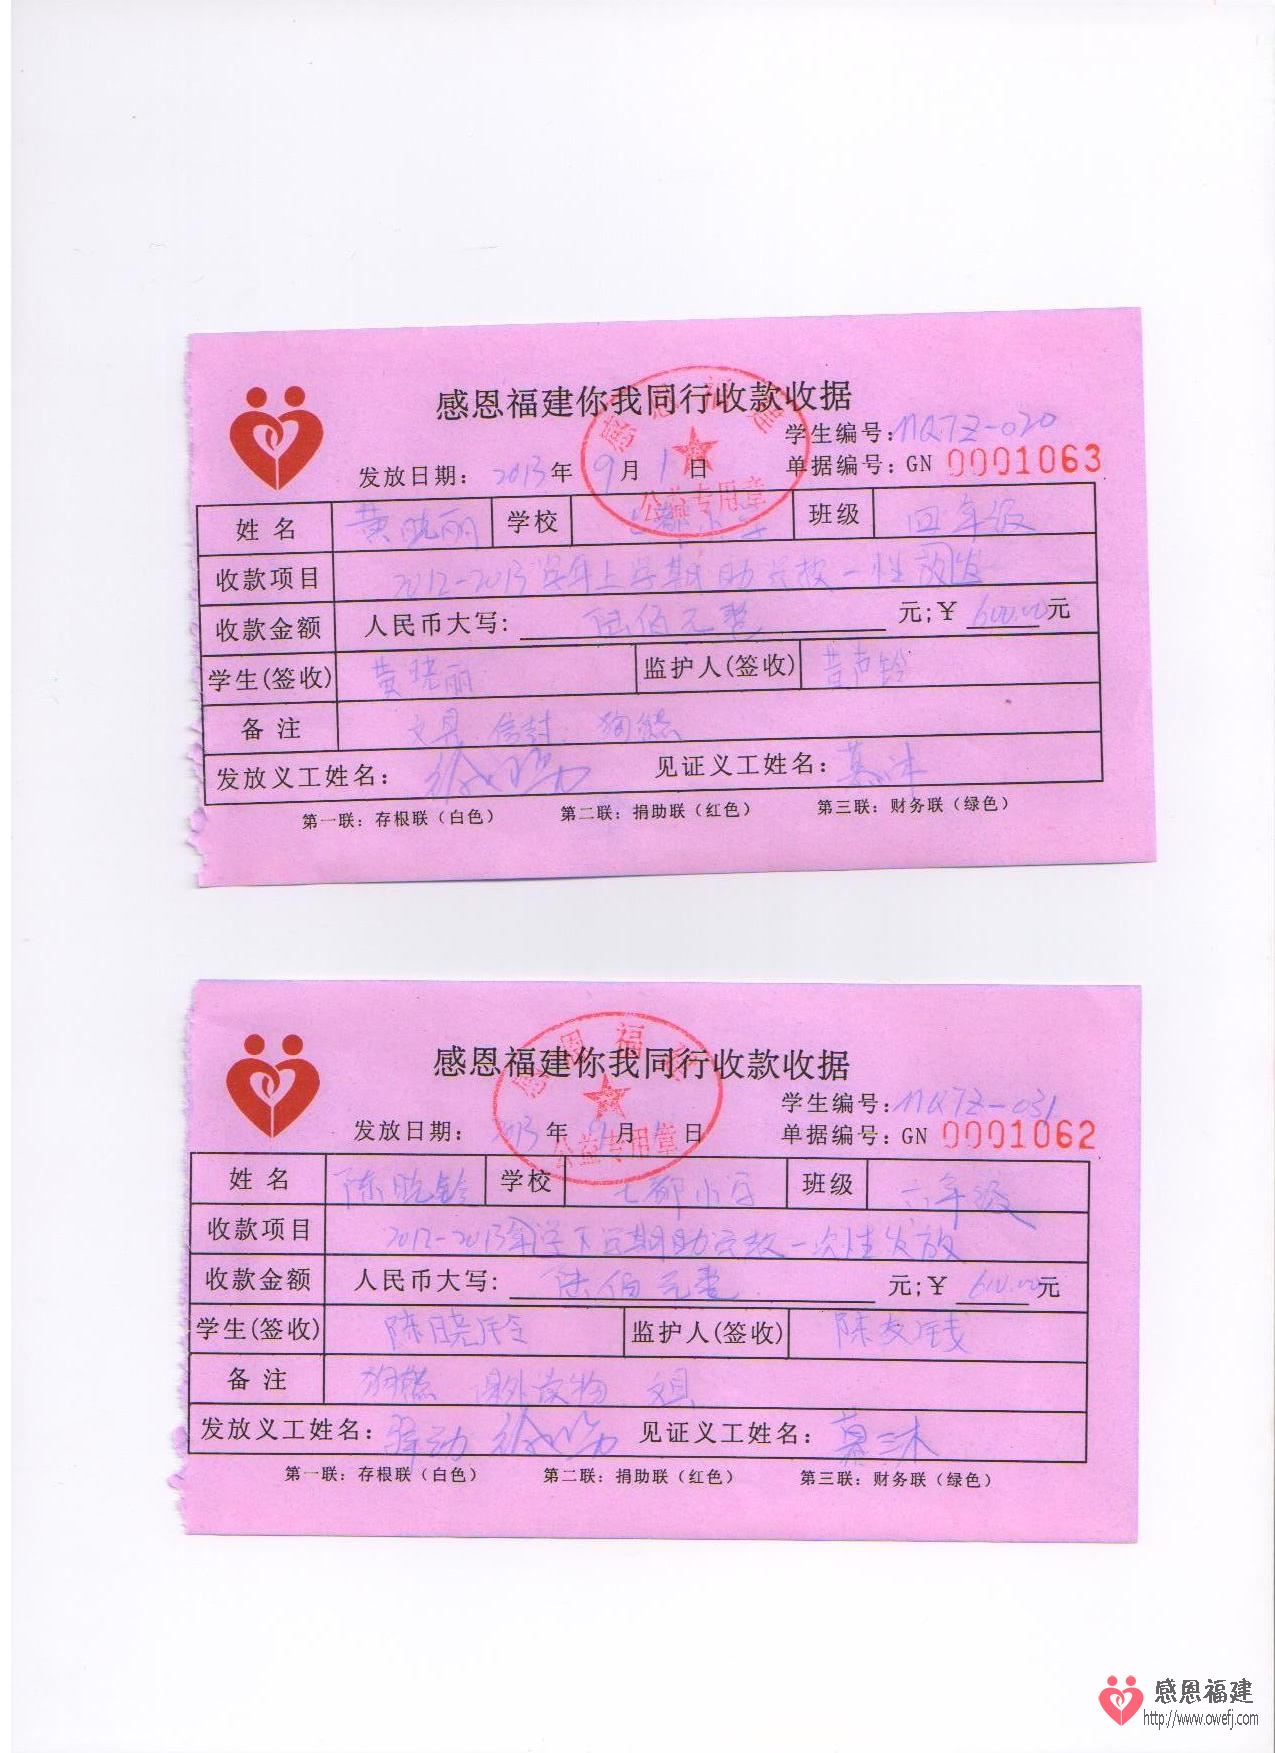 感恩福建你我同行收款收据
学生编号:NQTZ-020
发放日期: 2013年 9月 1日 单据编号: GN 0001063
感恩福建
公益专用章
姓名 黄晓丽 学校 七都小学 班级 四年级
收款项目 2012-2013学年上学期助学款一性放发
收款金额 人民币大写: 陆佰元整 元;¥ 600.00元
学生(签收) 黄晓丽 监护人(签收) 黄声铃
备注 文具 信封
发放义工姓名: 见证义工姓名: 慕沐
第一联: 存根联(白色) 第二联: 捐助联(红色) 第三联: 财务联(绿色)
感恩福建你我同行收款收据
学生编号:NQTZ-031
发放日期: 2013年 9月 1日 单据编号: GN 0001062
感恩福建
公益专用章
姓名 陈晓铃 学校 七都小学 班级 六年级
收款项目 2012-2013学下学期助学款一次性发放
收款金额 人民币大写: 陆佰元整 元;¥ 600.00元
学生(签收) 陈晓铃 监护人(签收) 陈友钱
备注 课外读物 文具
发放义工姓名: 见证义工姓名: 慕沐
第一联: 存根联(白色) 第二联: 捐助联(红色) 第三联: 财务联(绿色)
感恩福建
http://www.owefj.com